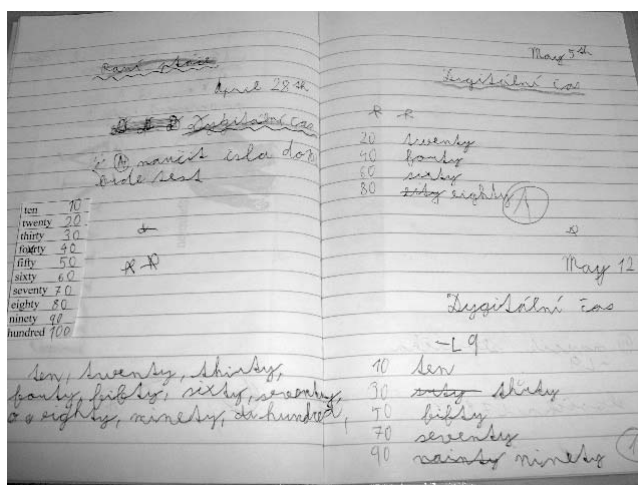 April 28th
Dygitální čas
naučit čísla do
bude test
ten 10
twenty 20
thirty 30
fourty 40
fifty 50
sixty 60
seventy 70
eighty 80
ninety 90
hundred 100
ten, twenty, thirty,
forty, fifty, sixty, seventy,
eighty, ninety, hundred,
May 5th
Dygitální čas
20 twenty
40 forty
60 sixty
80 eighty 1
May 12
Dygitální čas
-L9
10 ten
30 thirty
50 fifty
70 seventy
90 ninety 1